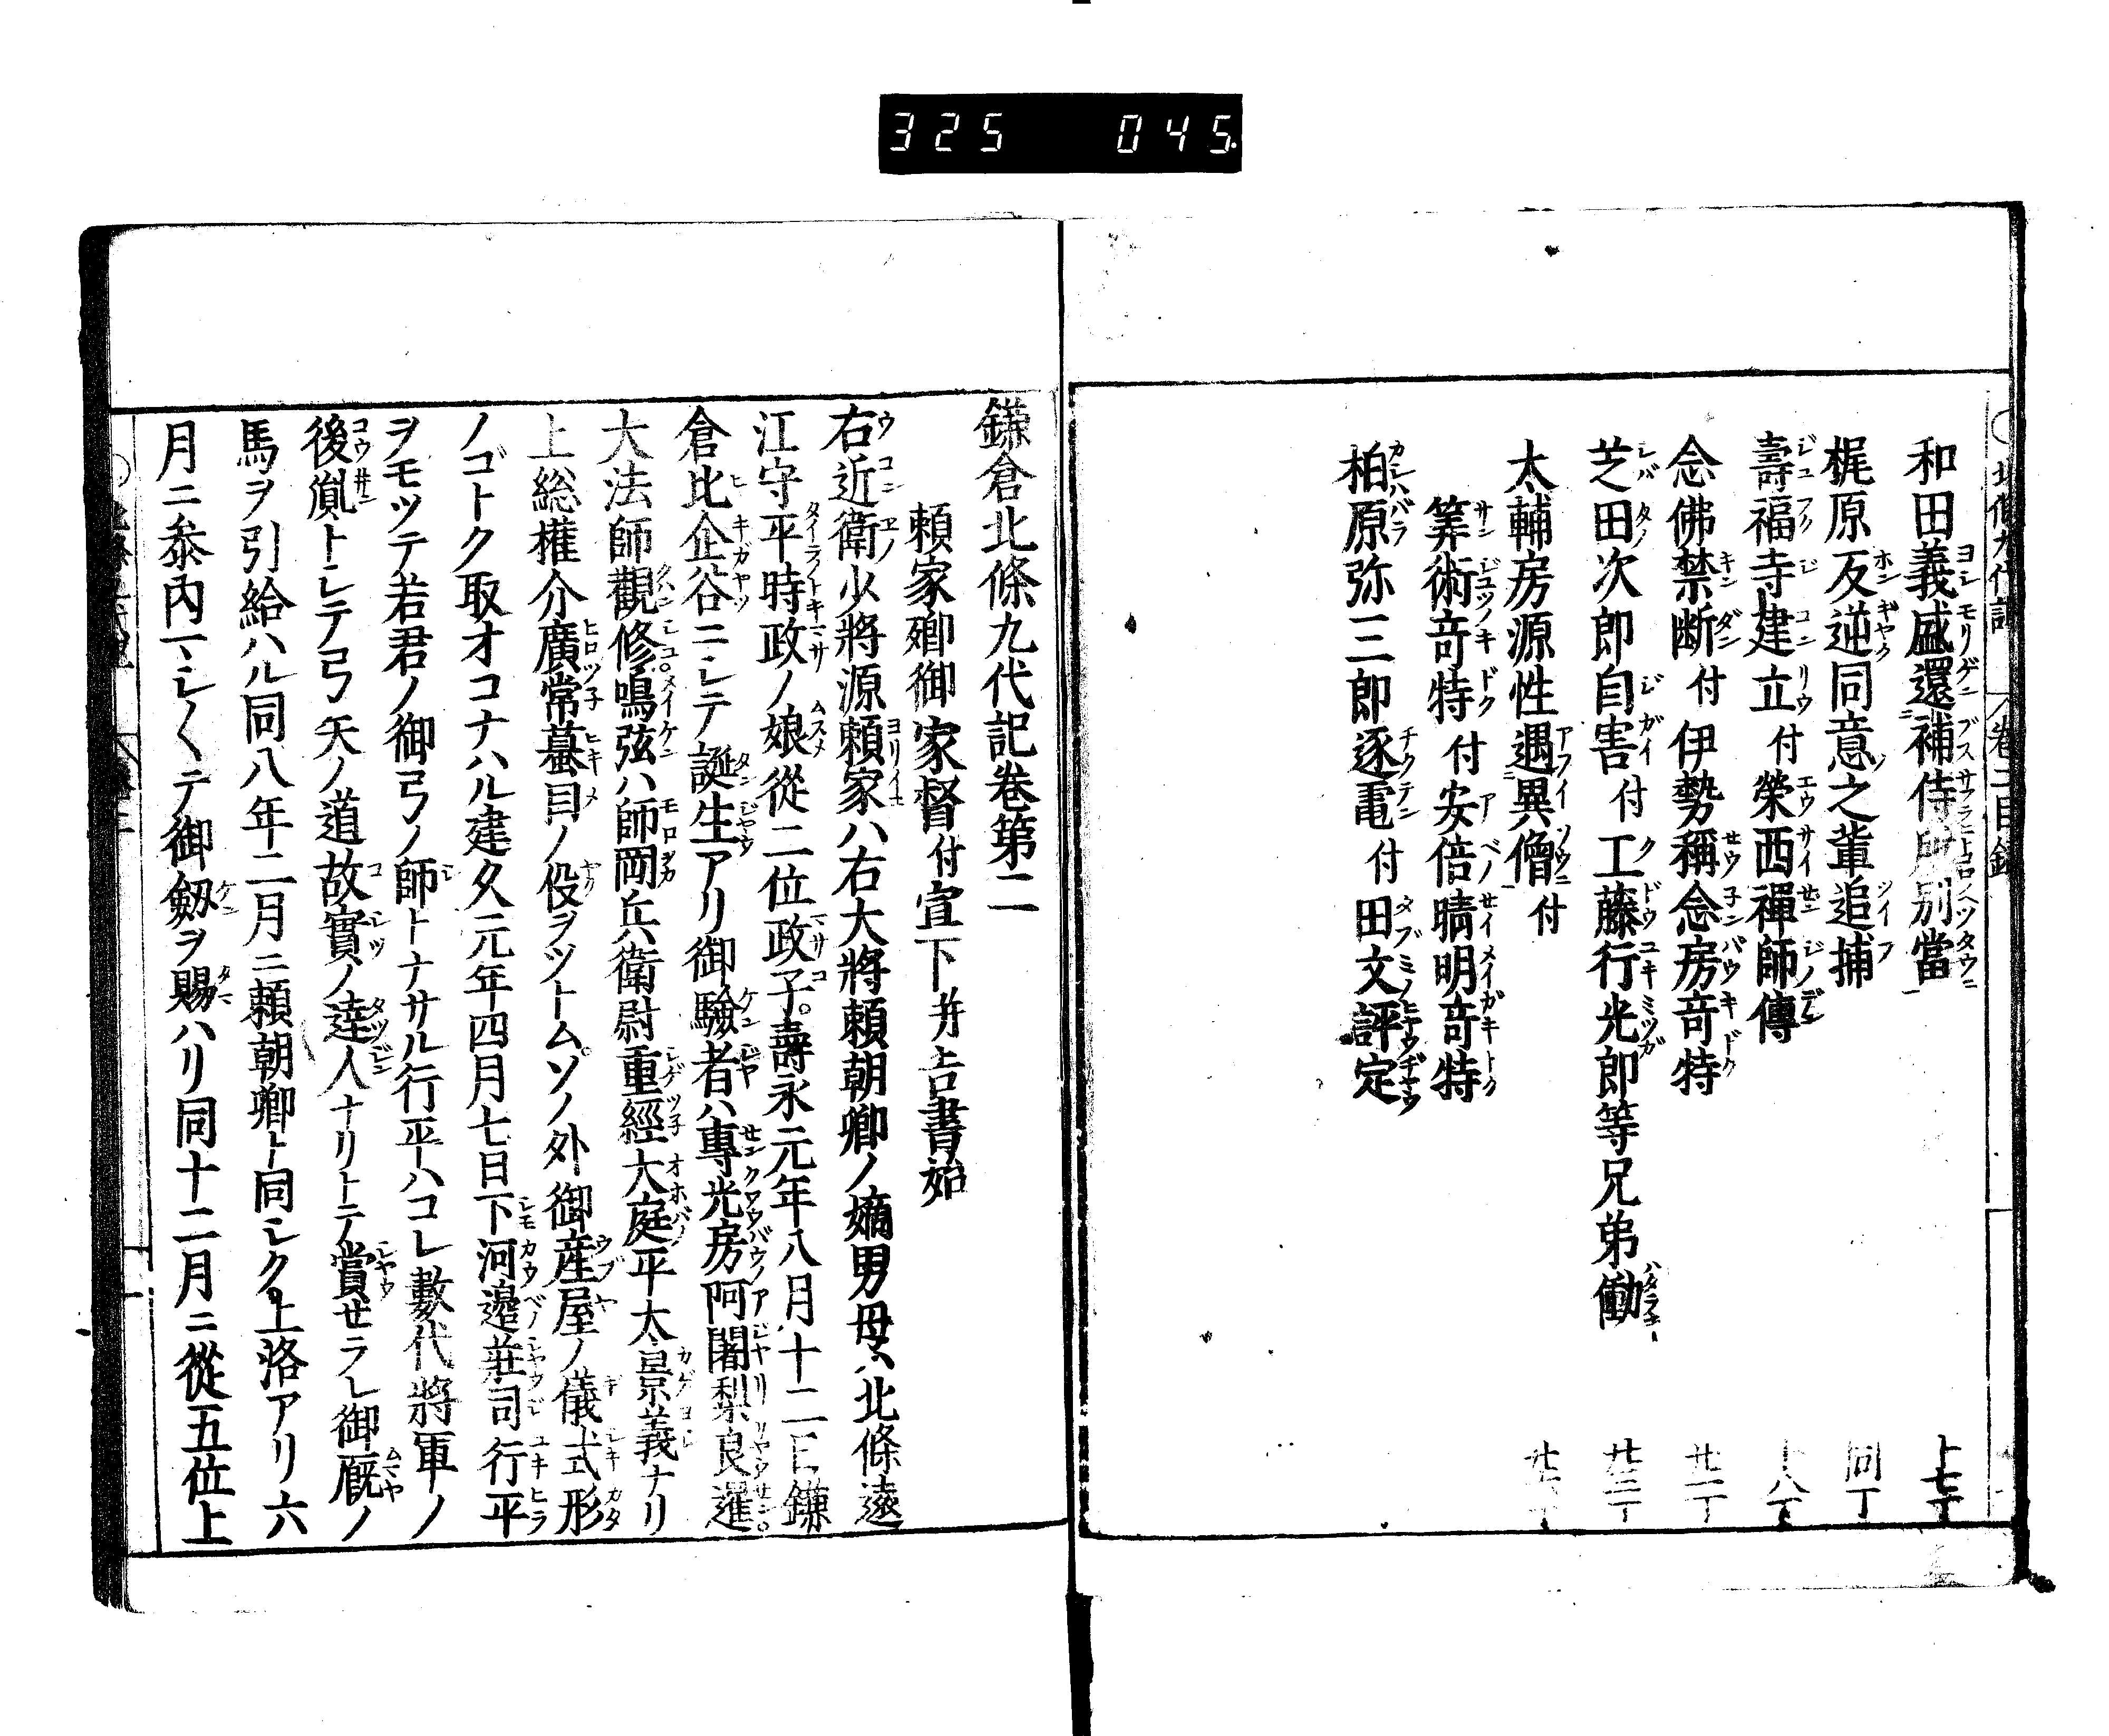 325 045
和田義盛還補侍所別當 十七丁
梶原反逆同意之輩追捕 同丁
壽福寺建立付榮西禪師傳 十八丁
念佛禁断付伊勢稱念房竒特 廿一丁
芝田次郎自害付工藤行光郎等兄弟働 廿三丁
太輔房源性遇異僧付
筭術竒特付安倍晴明竒特
柏原弥三郎逐電付田文評定
鎌倉北條九代記卷第二
頼家卿御家督付宣下并吉書始
右近衛少將源頼家ハ右大將頼朝卿ノ嫡男母ハ北條遠
江守平時政ノ娘從二位政子。壽永元年八月十二日鎌
倉比企谷ニシテ誕生アリ御驗者ハ專光房阿闍梨良暹。
大法師觀修鳴弦ハ師岡兵衛尉重經大庭平太景義ナリ
上総權介廣常蟇目ノ役ヲツトム。ソノ外御産屋ノ儀式形
ノゴトク取オコナハル建久元年四月七日下河邉莊司行平
ヲモツテ若君ノ御弓ノ師トナサル行平ハコレ數代將軍ノ
後胤トシテ弓矢ノ道故實ノ達人ナリトテ賞せラレ御厩ノ
馬ヲ引給ハル同八年二月ニ頼朝卿ト同シク上洛アリ六
月ニ参内マシ〱テ御劔ヲ賜ハリ同十二月ニ從五位上